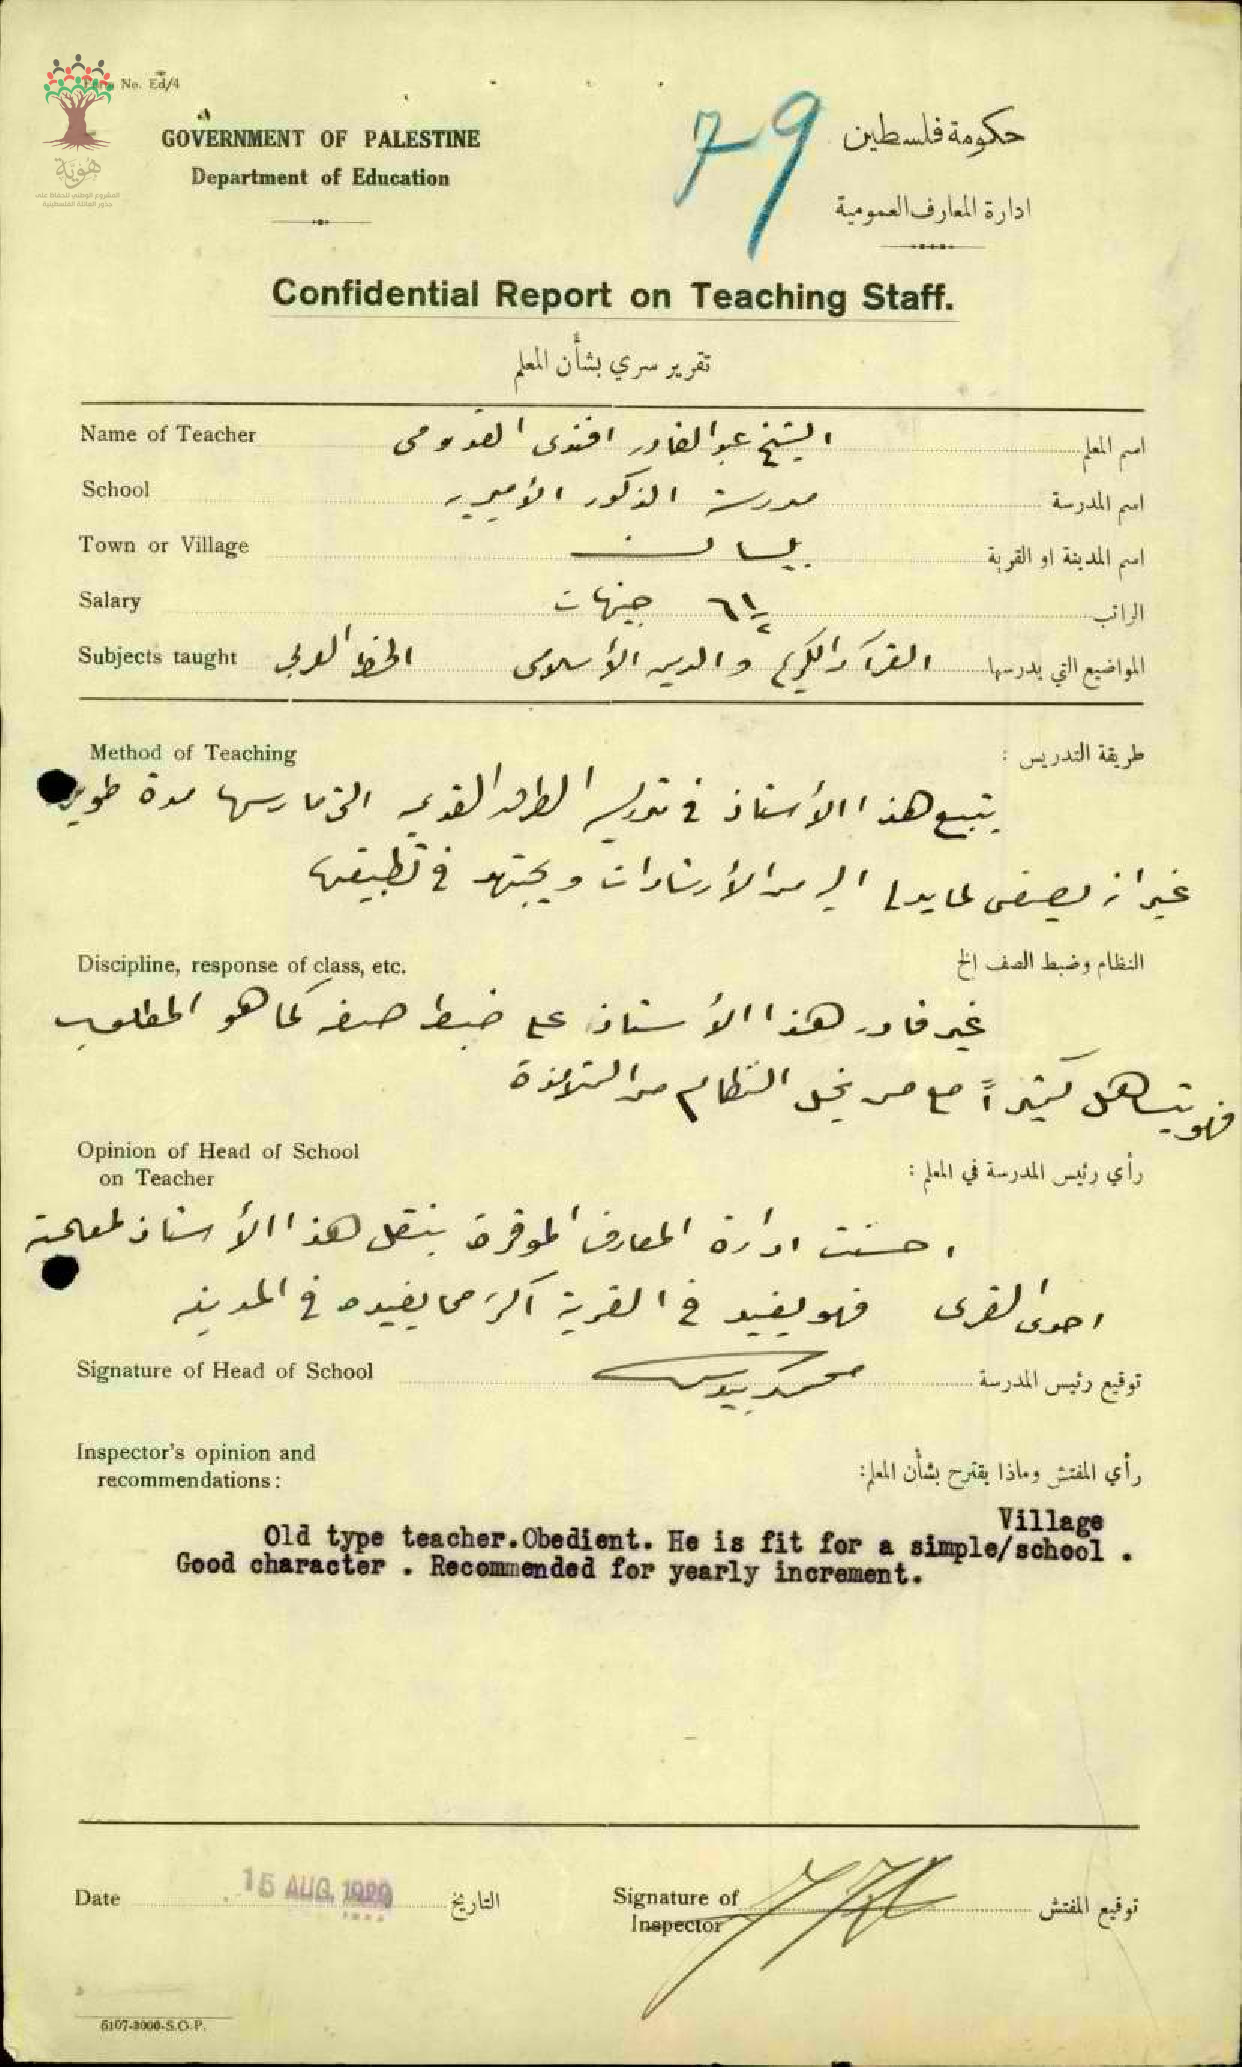 Form No. Ed/4
GOVERNMENT OF PALESTINE
Department of Education
79
حكومة فلسطين
ادارة المعارف العمومية
هُويَّة
المشروع الوطني للحفاظ على
جذور العائلة الفلسطينية
Confidential Report on Teaching Staff.
تقرير سري بشأن المعلم
Name of Teacher الشيخ عبد القادر افندي القدومي اسم المعلم
School مدرسة الذكور الأميرية اسم المدرسة
Town or Village بيسان اسم المدينة او القرية
Salary ٦ ١/٢ جنيهات الراتب
Subjects taught القرآن الكريم والدين الأسلامي الخط العربي المواضيع التي يدرسها
Method of Teaching طريقة التدريس :
يتبع هذا الأستاذ في تدريسه الطرق القديمة التي مارسها مدة طويلة
غير انه يصغي لما يدلى اليه من الأرشادات ويجتهد في تطبيقها
Discipline, response of class, etc. النظام وضبط الصف الخ
غير قادر هذا الأستاذ على ضبط صفه كما هو المطلوب
فهو يتساهل كثيراً مع من يخل النظام من التلامذة
Opinion of Head of School
on Teacher
رأي رئيس المدرسة في المعلم :
احسنت ادارة المعارف الموقرة بنقل هذا الأستاذ لمعلمية
احدى القرى فهو يفيد في القرية اكثر مما يفيده في المدينة
Signature of Head of School توقيع رئيس المدرسة
Inspector's opinion and
recommendations:
رأي المفتش وماذا يقترح بشأن المعلم:
Village
Old type teacher.Obedient. He is fit for a simple/school .
Good character . Recommended for yearly increment.
Date 15 AUG. 1929 التاريخ
Signature of
Inspector
توقيع المفتش
6107-3000-S.O.P.